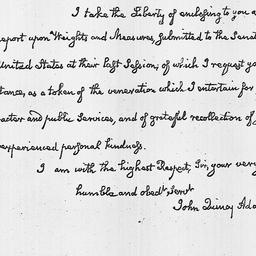 I take the Liberty of enclosing to you a
Report upon Weights and Measures, submitted to the Senat
United States at their last Session; of which I request yo
tance, as a token of the veneration which I entertain for
racter and public Services, and of grateful recollection of
experienced personal kindness.
I am with the highest Respect, Sir, your very
humble and obedt. Servt
John Quincy Ada